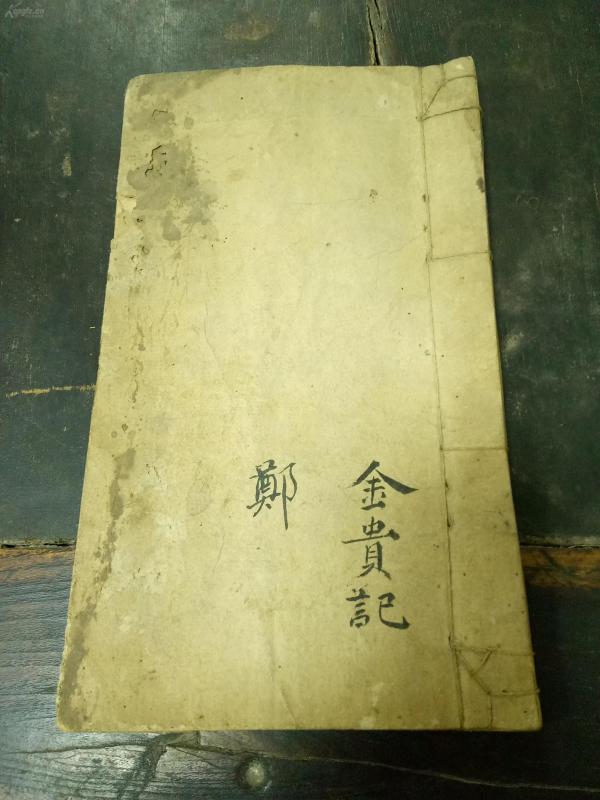 金貴記
鄭